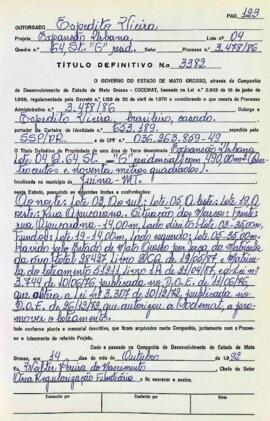 PAG. 123
OUTORGADO Expedito Vieira
Projeto Expansão Urbana Lote nº 04
Quadra n.º 64 St. "G" resid. Setor Processo nº 3.478/86
TÍTULO DEFINITIVO Nº 3382
O GOVERNO DO ESTADO DE MATO GROSSO, através da Companhia
de Desenvolvimento do Estado de Mato Grosso - CODEMAT, baseado na Lei n.º 2.903 de 19 de junho de
1.969, regulamentada pelo Decreto n.º 1.128 de 30 de abril de 1970 e considerando o que consta do Processo
Administrativo n.º 3.478/86
outorga a
Expedito Vieira, brasileiro, casado.
portador da Carteira de Identidade n.º 653.189
expedida por
SSP/PR. e do CPF n.º 036.263.859-49
o Título Definitivo de Propriedade de uma área de terra denominada Expansão Urbana
Lote: 04 Q. 64 St. "G" residencial, com 490,00m² (Qua-
trocentos e noventa metros quadrados).
localizada no município de Juina - MT
neste Estado, possuindo as seguintes limites e confrontações:
Ao norte: lote: 03, Ao sul: lote: 05, A este: lote: 19, A
oeste: Rua Apucarana. Situação dos Marcos: Frente:
rua Apucarana - 14,00m, lado dito: lote: 03 - 35,00m,
Fundos: lote: 19 - 14,00m, lado esqdo: lote: 05 - 35,00m.
Havido pelo Estado de Mato Grosso por força da Matrícula
3.744 de 10/06/76, publicada no D.O.E. de 11/06/76,
que altera a Lei nº 3.307 de 10/12/72, publicada no
D.O.E. de 26/12/72 que autorizou a Codemat, a pro-
mover o loteamento.
tudo conforme planta e memorial descritivo, que ficam arquivados nesta Companhia, juntamente com o Proces-
so e loteamento do referido Projeto.
Dado e passado na Companhia de Desenvolvimento do Estado de Mato
Grosso, em 14 dias do mês de Outubro de 1.992
Eu Walter Pereira do Nascimento
Div. Regularização Fundiária o fiz escrever e assino.
Transferido P/ Conferido P/ Visto